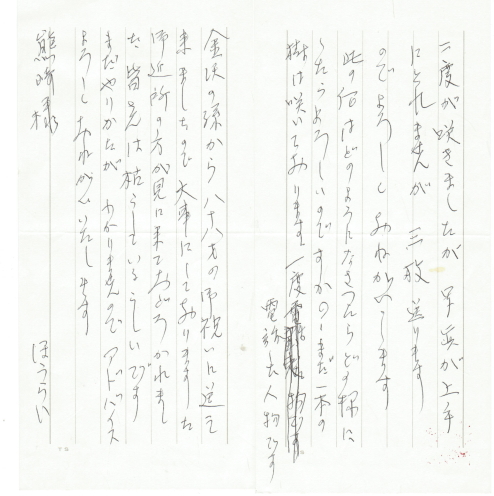 二度が咲きましたが 写真が上手
にとれませんが 三枚送ります
のでよろしくおねがいします
此の後はどのようになさったらどの様に
したらよろしいのですか まだ一本の
樹は咲いております 一度
電話した人物です
金沢の孫から八十八才の御祝いに送って
来ましたので大事にしておりました
御近所の方が見に来ておどろかれまし
た 皆さんは枯らしているらしいです
まだやりかたが わかりませんのでアドバイス
よろしくおねがいいたします
熊﨑様
ほうらい